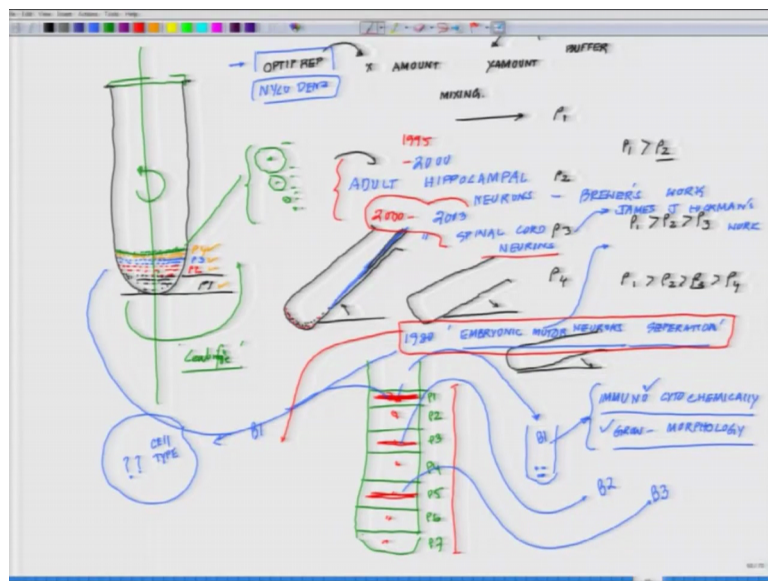 OPTIPREP X AMOUNT Y AMOUNT BUFFER
NYCODENZ
MIXING
P1
1995
-2000
P1 > P2
ADULT HIPPOCAMPAL P2
NEURONS - BREWER'S WORK
2000 - 2003
JAMES J HICKMAN'S
WORK
" SPINAL CORD P3
NEURONS
P1 > P2 > P3
P4
P3
P2
P1
P4
P1 > P2 > P3 > P4
1980 'EMBRYONIC MOTOR NEURONS SEPERATION'
"Centrifuge"
CELL
TYPE
??
B1
P1
P2
P3
P4
P5
P6
P7
B1
IMMUNO CYTOCHEMICALLY
GROW - MORPHOLOGY
B2
B3